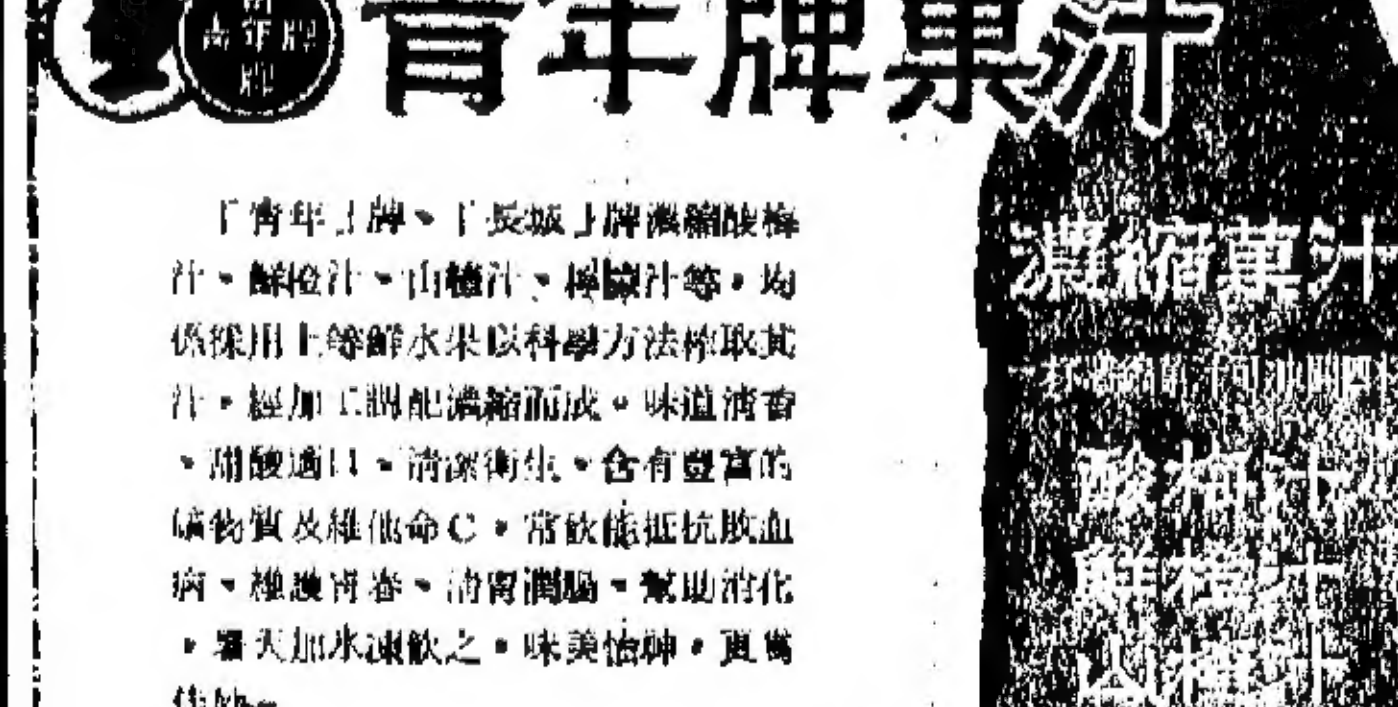 青年牌
青年牌菓汁
「青年」牌、「長城」牌濃縮酸梅
汁、鮮橙汁、山楂汁、檸檬汁等，均
係採用上等鮮水果以科學方法榨取其
汁，經加工調配濃縮而成。味道清香
、甜酸適口、清潔衛生。含有豐富的
礦物質及維他命C，常飲能抵抗敗血
病、維護青春、清胃潤腸、幫助消化
。暑天加水凍飲之，味美怡神，更為
濃縮菓汁
酸梅汁
鮮橙汁
山楂汁